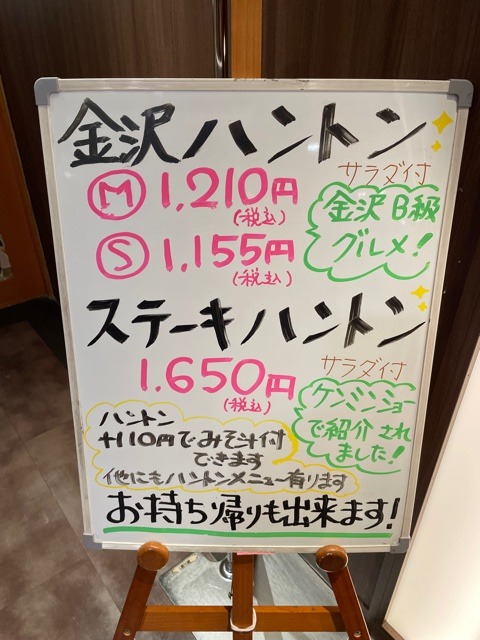 金沢ハントン
サラダ付
Ⓜ 1,210円
(税込)
金沢B級
グルメ!
Ⓢ 1,155円
(税込)
ステーキハントン
サラダ付
1.650円
(税込)
ケンミンショー
で紹介され
ました!
ハントン
+110円でみそ汁付
できます
他にもハントンメニュー有ります
お持ち帰りも出来ます!